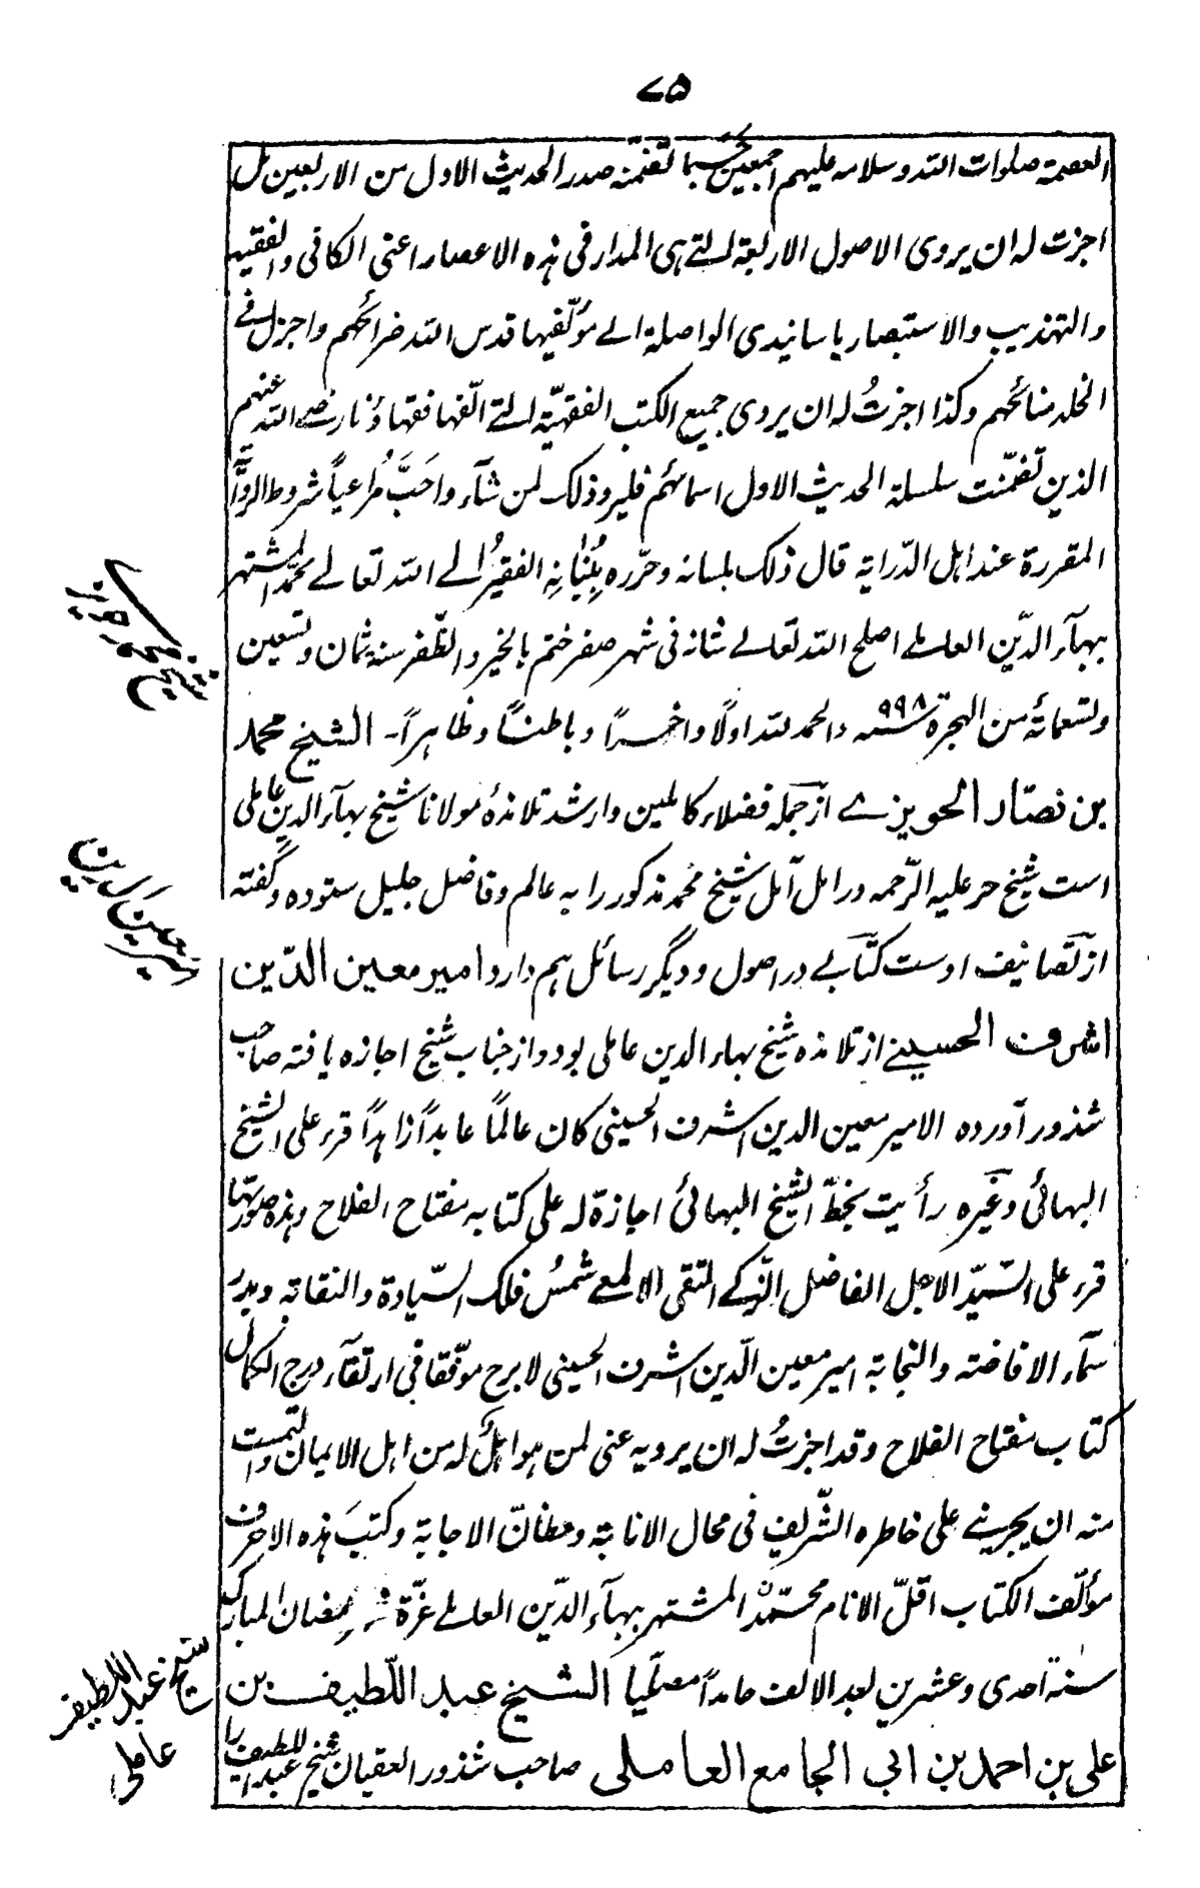 ۷۵
العصمة صلوات الله وسلامه عليهم اجمعين حسبما تضمّنه صدر الحديث الاول من الاربعين بل
اجزت له ان يروى الاصول الاربعة التے هى المدار فى هذه الاعصار اعنى الكافى والفقيه
والتهذيب والاستبصار باسانيدى الواصلة الے مؤلّفيها قدس الله ضرائحهم واجزل فے
الخلد منائحهم وكذا اجزتُ له ان يروى جميع الكتب الفقهيّة التے الّفها فقهاؤنا رضے الله عنهم
الذين تضمّنت سلسلة الحديث الاول اسمائهم فليرو ذلك لمن شآء واحَبَّ مُراعياً شروط الروّاية
المقررة عند اهل الدّراية قال ذلك بلسانه وحرّره بِبَنَانِهِ الفقيرُ الے الله تعالے محمّد المشتهر
ببهآء الدّين العاملے اصلح الله تعالے شانه فى شهر صفر ختم بالخير والظّفر سنة ثمان وتسعين
وتسعمائة من الهجرة سنه ۹۹۸ والحمد لله اولًا واخراً وباطناً وظاهراً۔ الشيخ محمد
بن نصّار الحويزے از جمله فضلاء كاملين وارشد تلامذهٔ مولانا شيخ بهآء الدين عاملى
است شيخ حر عليه الرّحمه در امل آمل شيخ محمّد مذكور را به عالم وفاضل جليل ستوده وگفته
از تصانيف اوست كتابے در اصول و ديگر رسائل هم دارد امير معين الدّين
اشرف الحسينے از تلامذه شيخ بهاء الدين عاملى بود و از جناب شيخ اجازه يافته صاحب
شذور آورده الامير معين الدين اشرف الحسينى كان عالمًا عابداً زاهداً قرء على الشيخ
البهائى وغيره رأيت بخطّ الشيخ البهائى اجازة له على كتابه مفتاح الفلاح وهذه صورتها
قرء على السّيّد الاجل الفاضل الزّكے المتقى الالمعے شمسُ فلك السّيادة والنقابة وبدرُ
سمآء الافاضة والنجابة امير معين الدّين اشرف الحسينى لا برح موفّقا فى ارتقآء درج الكمال
كتاب مفتاح الفلاح وقد اجزتُ له ان يرويه عنى لمن هو اهلٌ له من اهل الايمان والتمست
منه ان يجرينے على خاطره الشّريف فى محال الانابة ومظانّ الاجابة وكتبَ هذه الاحرف
مؤلّف الكتاب اقلّ الانام محمّد المشتهر ببهآء الدّين العاملے غرّة شهر رمضان المبارك
سنة احدى وعشرين بعد الالف حامداً مصلّيا الشيخ عبد اللّطيف بن
على بن احمد بن ابى الجامع العاملى صاحب شذور العقيان شيخ عبد اللطيف را
شيخ محمد حويزى
امير معين الدين
شيخ عبد اللطيف
عاملى